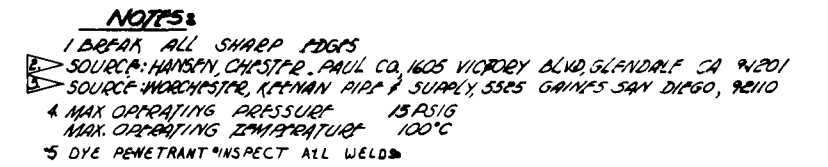 NOTES:
1 BREAK ALL SHARP EDGES
2. SOURCE: HANSEN, CHESTER. PAUL CO, 1605 VICTORY BLVD, GLENDALE CA 91201
3. SOURCE: WORCHESTER, KEENAN PIPE & SUPPLY, 5525 GAINES SAN DIEGO, 92110
4. MAX OPERATING PRESSURE 15 PSIG
MAX. OPERATING TEMPERATURE 100°C
5 DYE PENETRANT INSPECT ALL WELDS